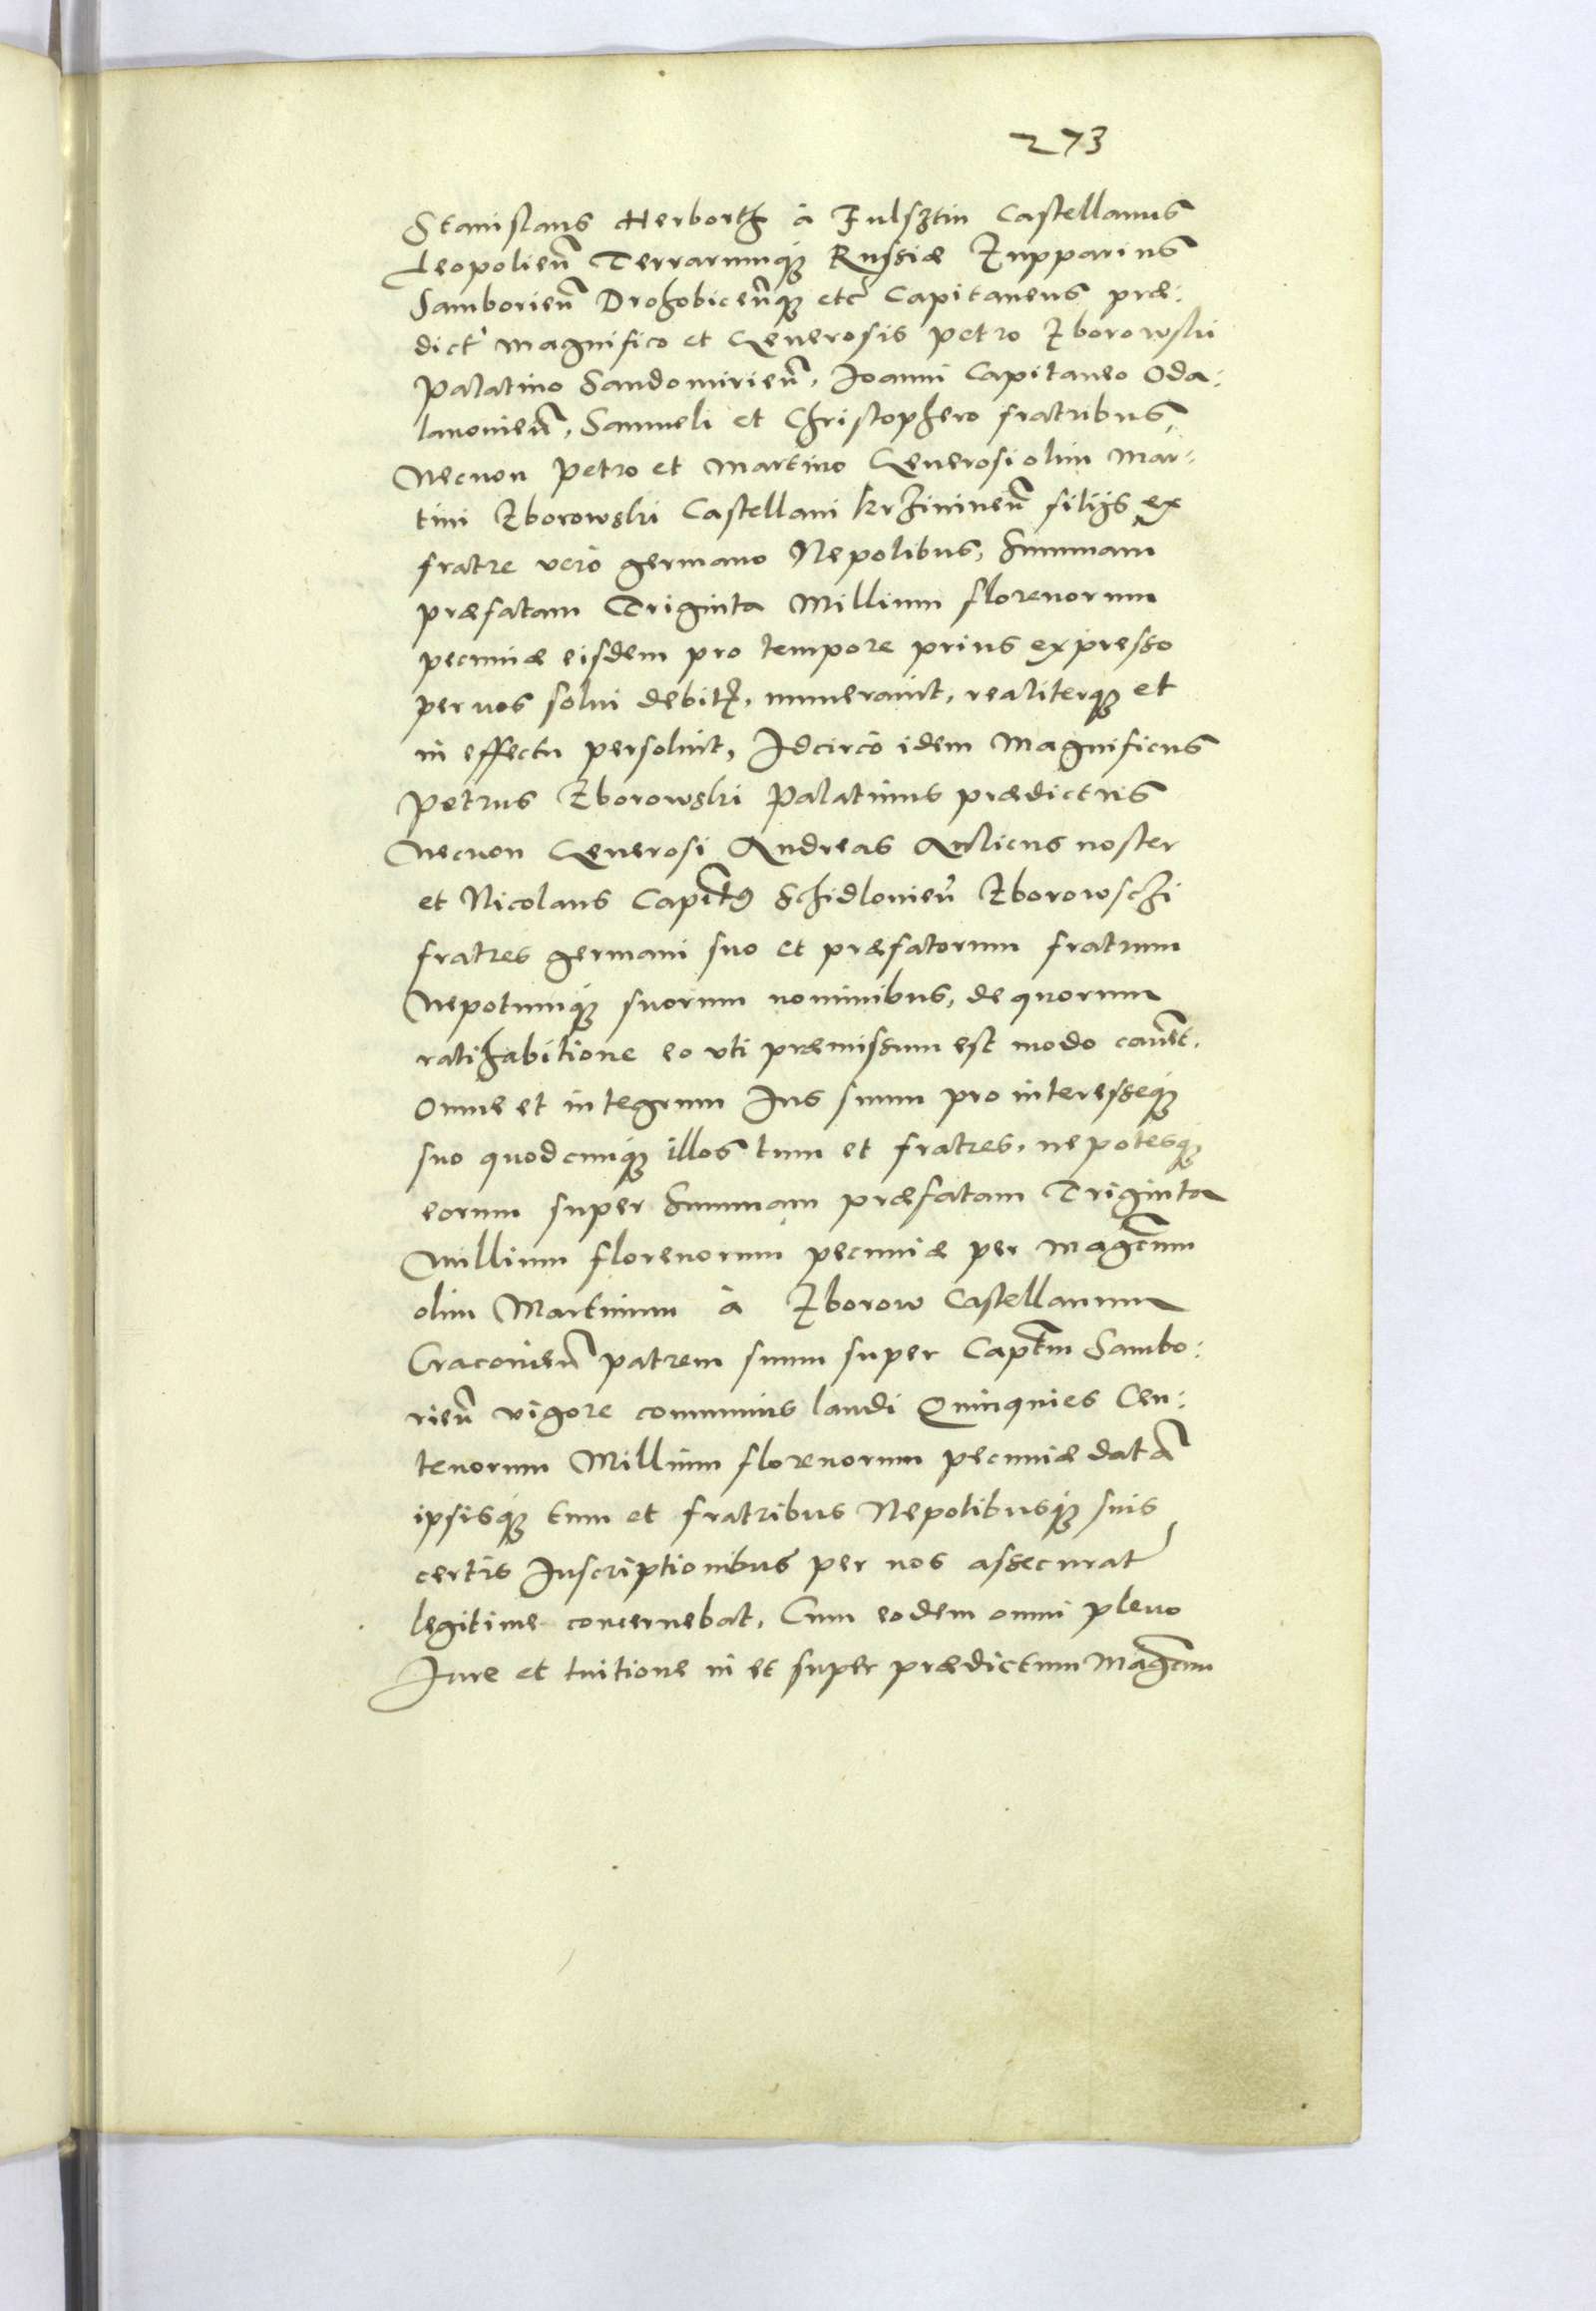 273
Stanislaus Herborth à Fulsztin Castellanus
Leopolieñ Terrarumq́ue Russiæ Zupparius
Samborieñ Drohobiceñque etc̃ Capitaneus præ:
dict' magnifico et Generosis Petro Zborowski
Palatino Sandomirieñ, Joanni Capitaneo Oda:
lanovieñ, Samueli et Christophero fratribus,
Necnon Petro et Martino Generosi olim Mar:
tini Zborowski Castellani krzivineñ filijs ex
fratre verò germano Nepotibus, Summam
præfatam Triginta Millium florenorum
pecuniæ eisdem pro tempore prius expresso
per nos solui debitã, numerauit, realiterque et
in effectu persoluit, Idcircò idem Magnificus
Petrus Zborowski Palatinus prædictus
Necnon Generosi Andreas Aulicus noster
et Nicolaus Capit̃us Schidlovieñ Zborowsczi
fratres germani suo et præfatorum fratrum
Nepotumq́ue suorum nominibus, de quorum
ratihabitione eo vti præmissum est modo cavẽt.
Omne et integrum Ius suum pro interesseq́ue
suo quodcunq́ue illos tum et fratres, nepotesq́ue
eorum super Summam præfatam Triginta
Millium florenorum pecuniæ per Mag̃cum
olim Martinum à Zborow Castellanum
Cracovieñ patrem suum super Capt̃m Sambo:
rieñ vigore communis laudi Quinquies Cen:
tenorum Millium florenorum pecuniæ datã
ipsisq́ue tum et fratribus Nepotibusq́ue suis
certis Inscriptionibus per nos assecurat'
legitime concernebat, Cum eodem omni pleno
Iure et tuitione in et super prædictum Mag̃cum